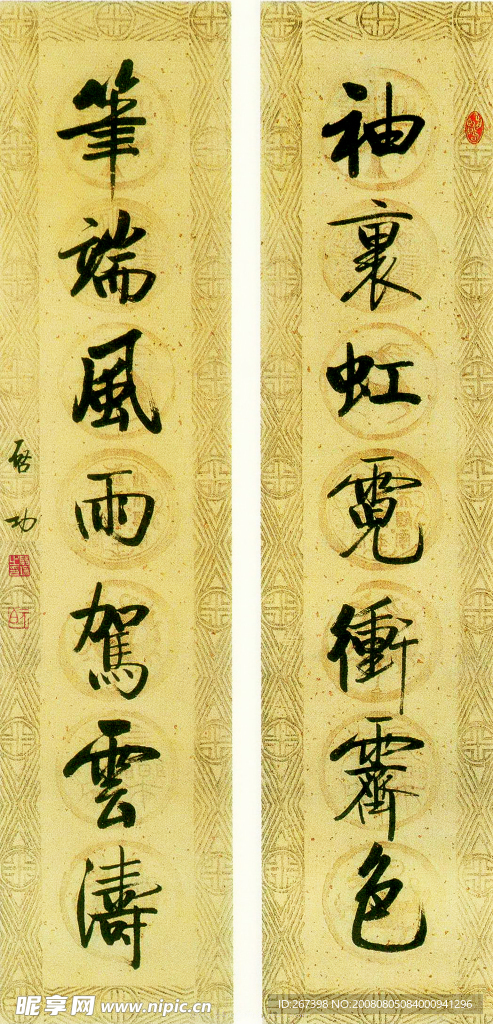 袖裏虹霓衝霽色
筆端風雨駕雲濤
啓功
昵享网 www.nipic.cn
ID:267398 NO.20080805084000941296